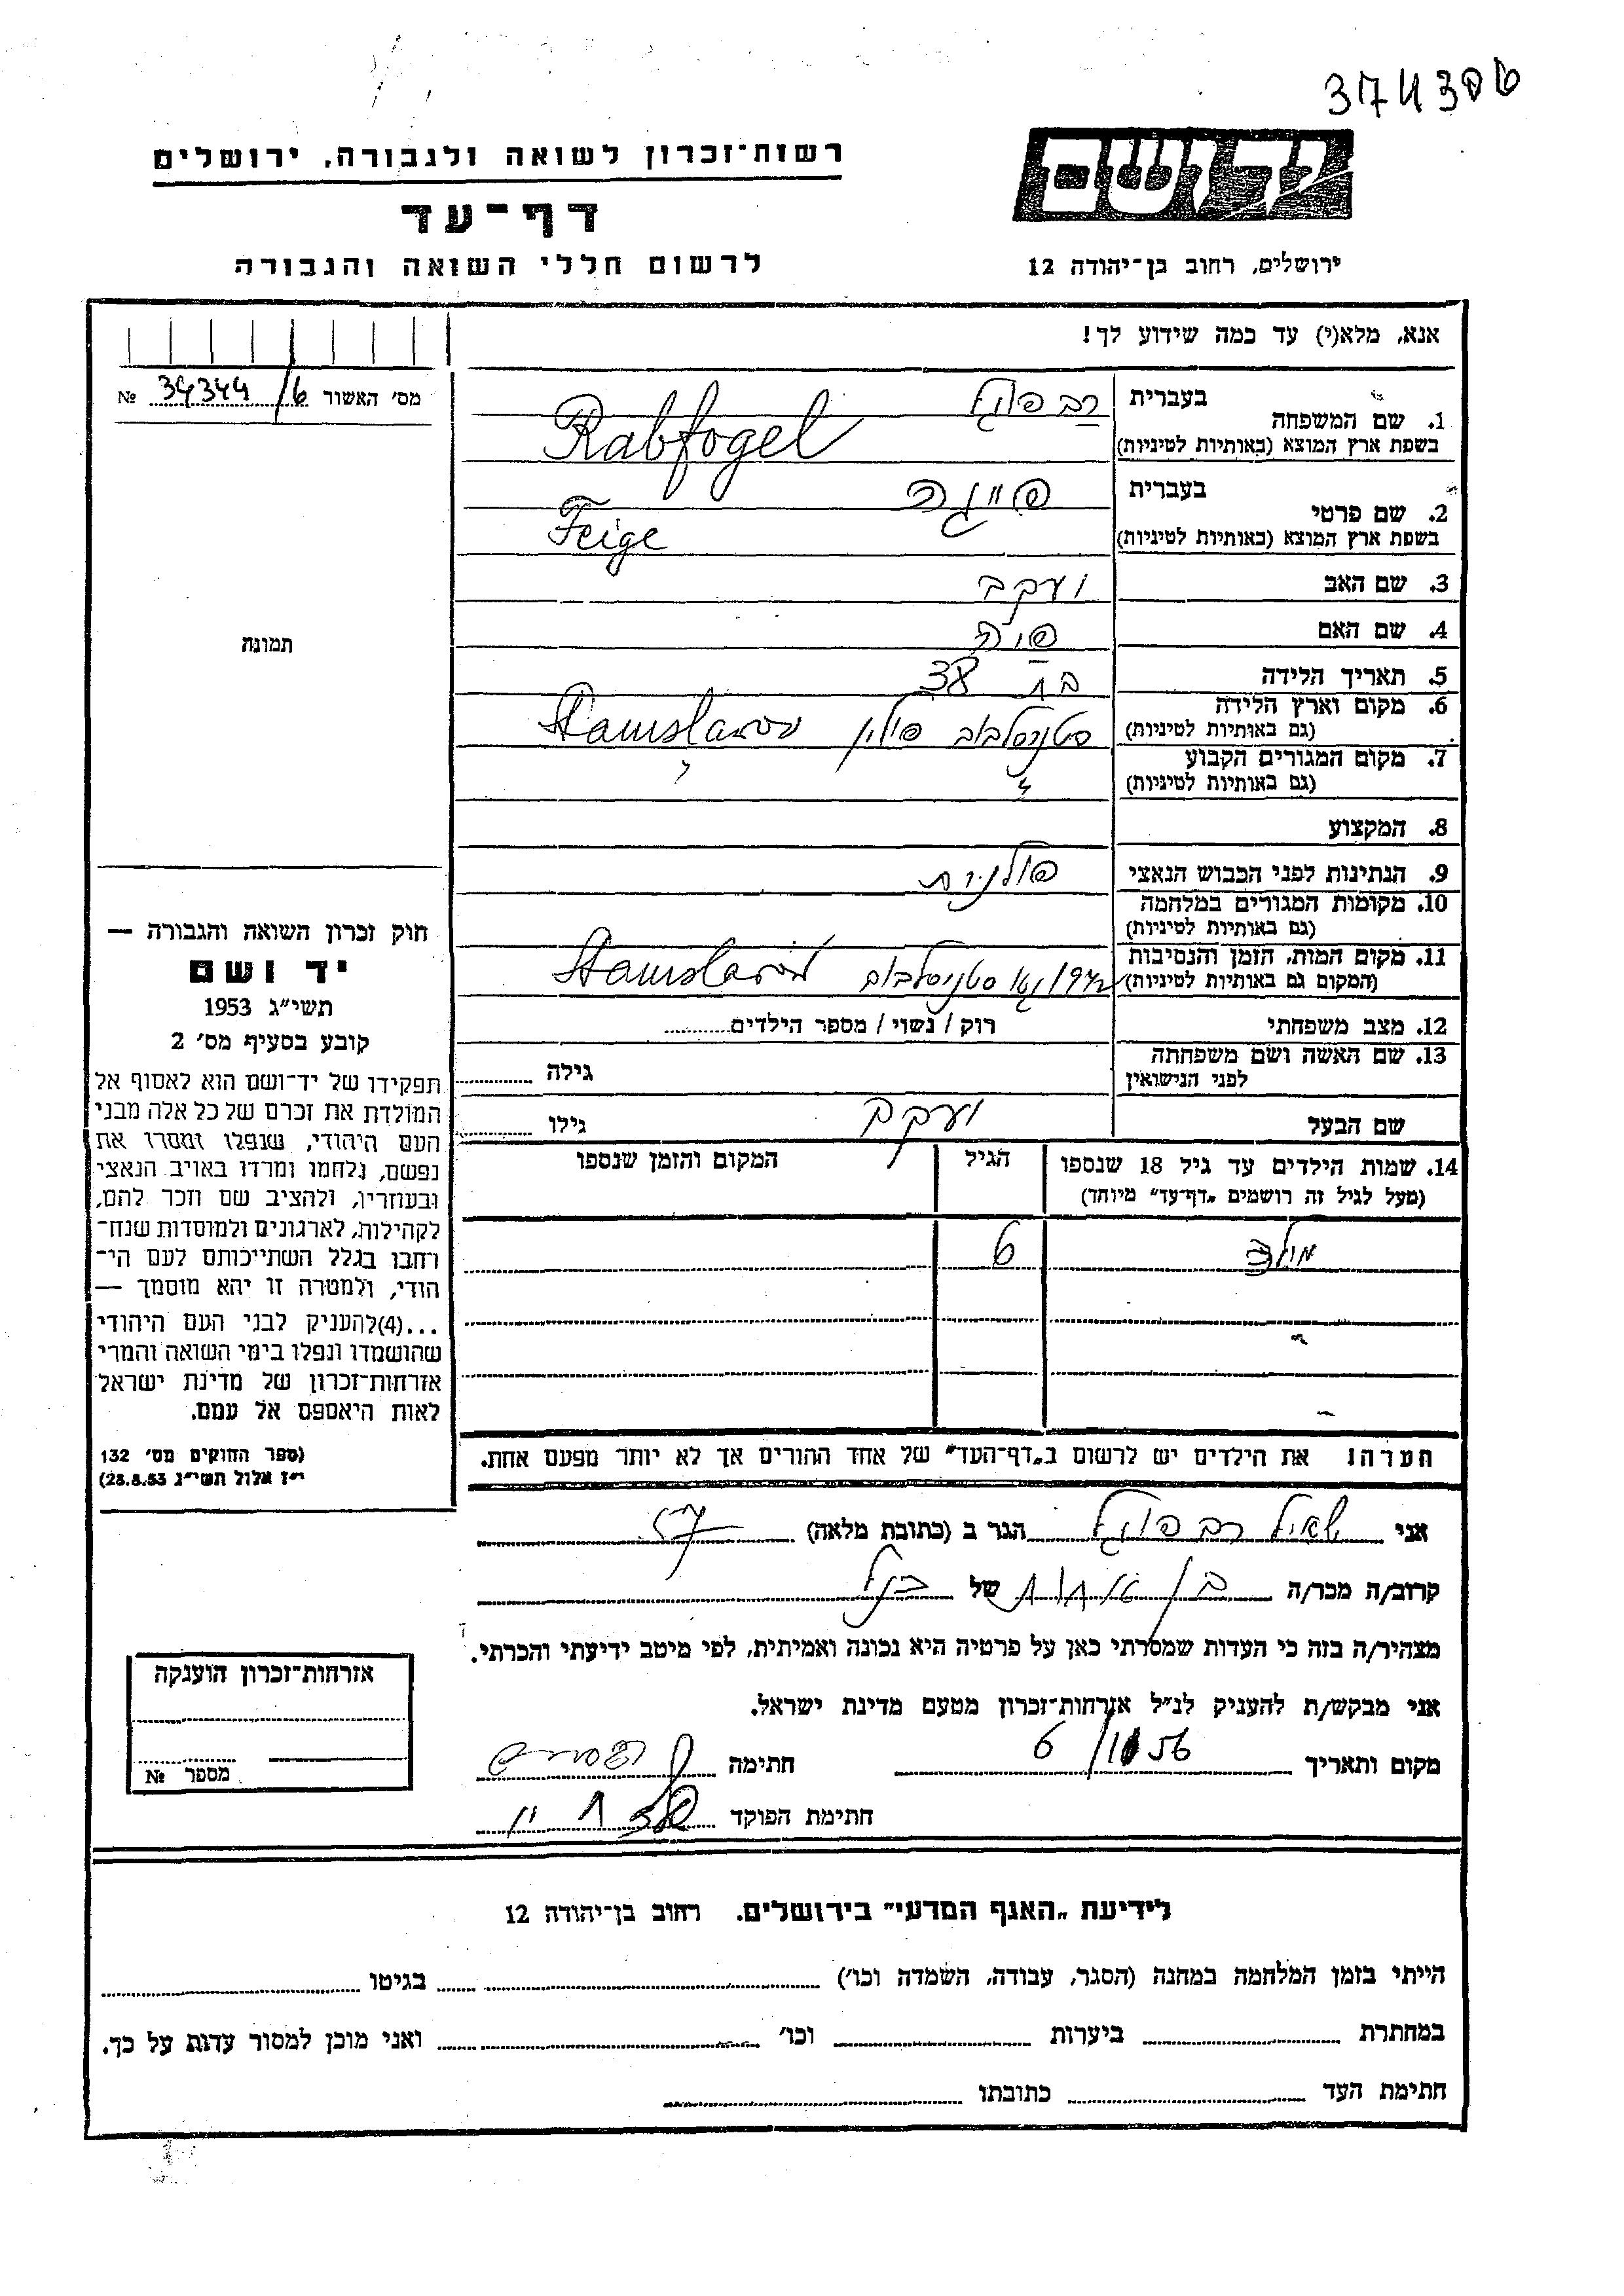 374306
רשות־זכרון לשואה ולגבורה, ירושלים
יד ושם
דף־עד
לרשום חללי השואה והגבורה
ירושלים, רחוב בן־יהודה 12
אנא, מלא(י) עד כמה שידוע לך!
מס׳ האשור 34344/6 №
1. שם המשפחה בעברית רבפוגל
בשפת ארץ המוצא (באותיות לטיניות) Rabfogel
2. שם פרטי בעברית פייגה
בשפת ארץ המוצא (באותיות לטיניות) Feige
3. שם האב יעקב
4. שם האם
5. תאריך הלידה בת 38
6. מקום וארץ הלידה סטניסלבוב פולין Stanislavov
(גם באותיות לטיניות)
7. מקום המגורים הקבוע
(גם באותיות לטיניות)
8. המקצוע
9. הנתינות לפני הכבוש הנאצי פולנית
10. מקומות המגורים במלחמה
(גם באותיות לטיניות)
11. מקום המות, הזמן והנסיבות
(המקום גם באותיות לטיניות) 1942 סטניסלבוב Stanislavov
12. מצב משפחתי רוק / נשוי / מספר הילדים
13. שם האשה ושם משפחתה
לפני הנישואין גילה
שם הבעל יעקב גילו
14. שמות הילדים עד גיל 18 שנספו הגיל המקום והזמן שנספו
(מעל לגיל זה רושמים „דף־עד״ מיוחד)
6
הערה: את הילדים יש לרשום ב„דף־העד״ של אחד ההורים אך לא יותר מפעם אחת.
תמונה
חוק זכרון השואה והגבורה —
יד ושם
תשי״ג 1953
קובע בסעיף מס׳ 2
תפקידו של יד־ושם הוא לאסוף אל
המולדת את זכרם של כל אלה מבני
העם היהודי, שנפלו ומסרו את
נפשם, נלחמו ומרדו באויב הנאצי
ובעוזריו, ולהציב שם וזכר להם,
לקהילות, לארגונים ולמוסדות שנח־
רבו בגלל השתייכותם לעם הי־
הודי, ולמטרה זו יהא מוסמך —
...(4)להעניק לבני העם היהודי
שהושמדו ונפלו בימי השואה והמרי
אזרחות־זכרון של מדינת ישראל
לאות היאספם אל עמם.
(ספר החוקים מס׳ 132
י״ז אלול תשי״ג 28.8.53)
אני רבפוגל הגר ב (כתובת מלאה)
קרוב/ה מכר/ה בן אחות של
מצהיר/ה בזה כי העדות שמסרתי כאן על פרטיה היא נכונה ואמיתית, לפי מיטב ידיעתי והכרתי.
אני מבקש/ת להעניק לנ״ל אזרחות־זכרון מטעם מדינת ישראל.
מקום ותאריך 6/10 56 חתימה
חתימת הפוקד
אזרחות־זכרון הוענקה
מספר №
לידיעת „האגף המדעי״ בירושלים. רחוב בן־יהודה 12
הייתי בזמן המלחמה במחנה (הסגר, עבודה, השמדה וכו׳) בגיטו
במחתרת ביערות וכו׳ ואני מוכן למסור עדות על כך.
חתימת העד כתובתו